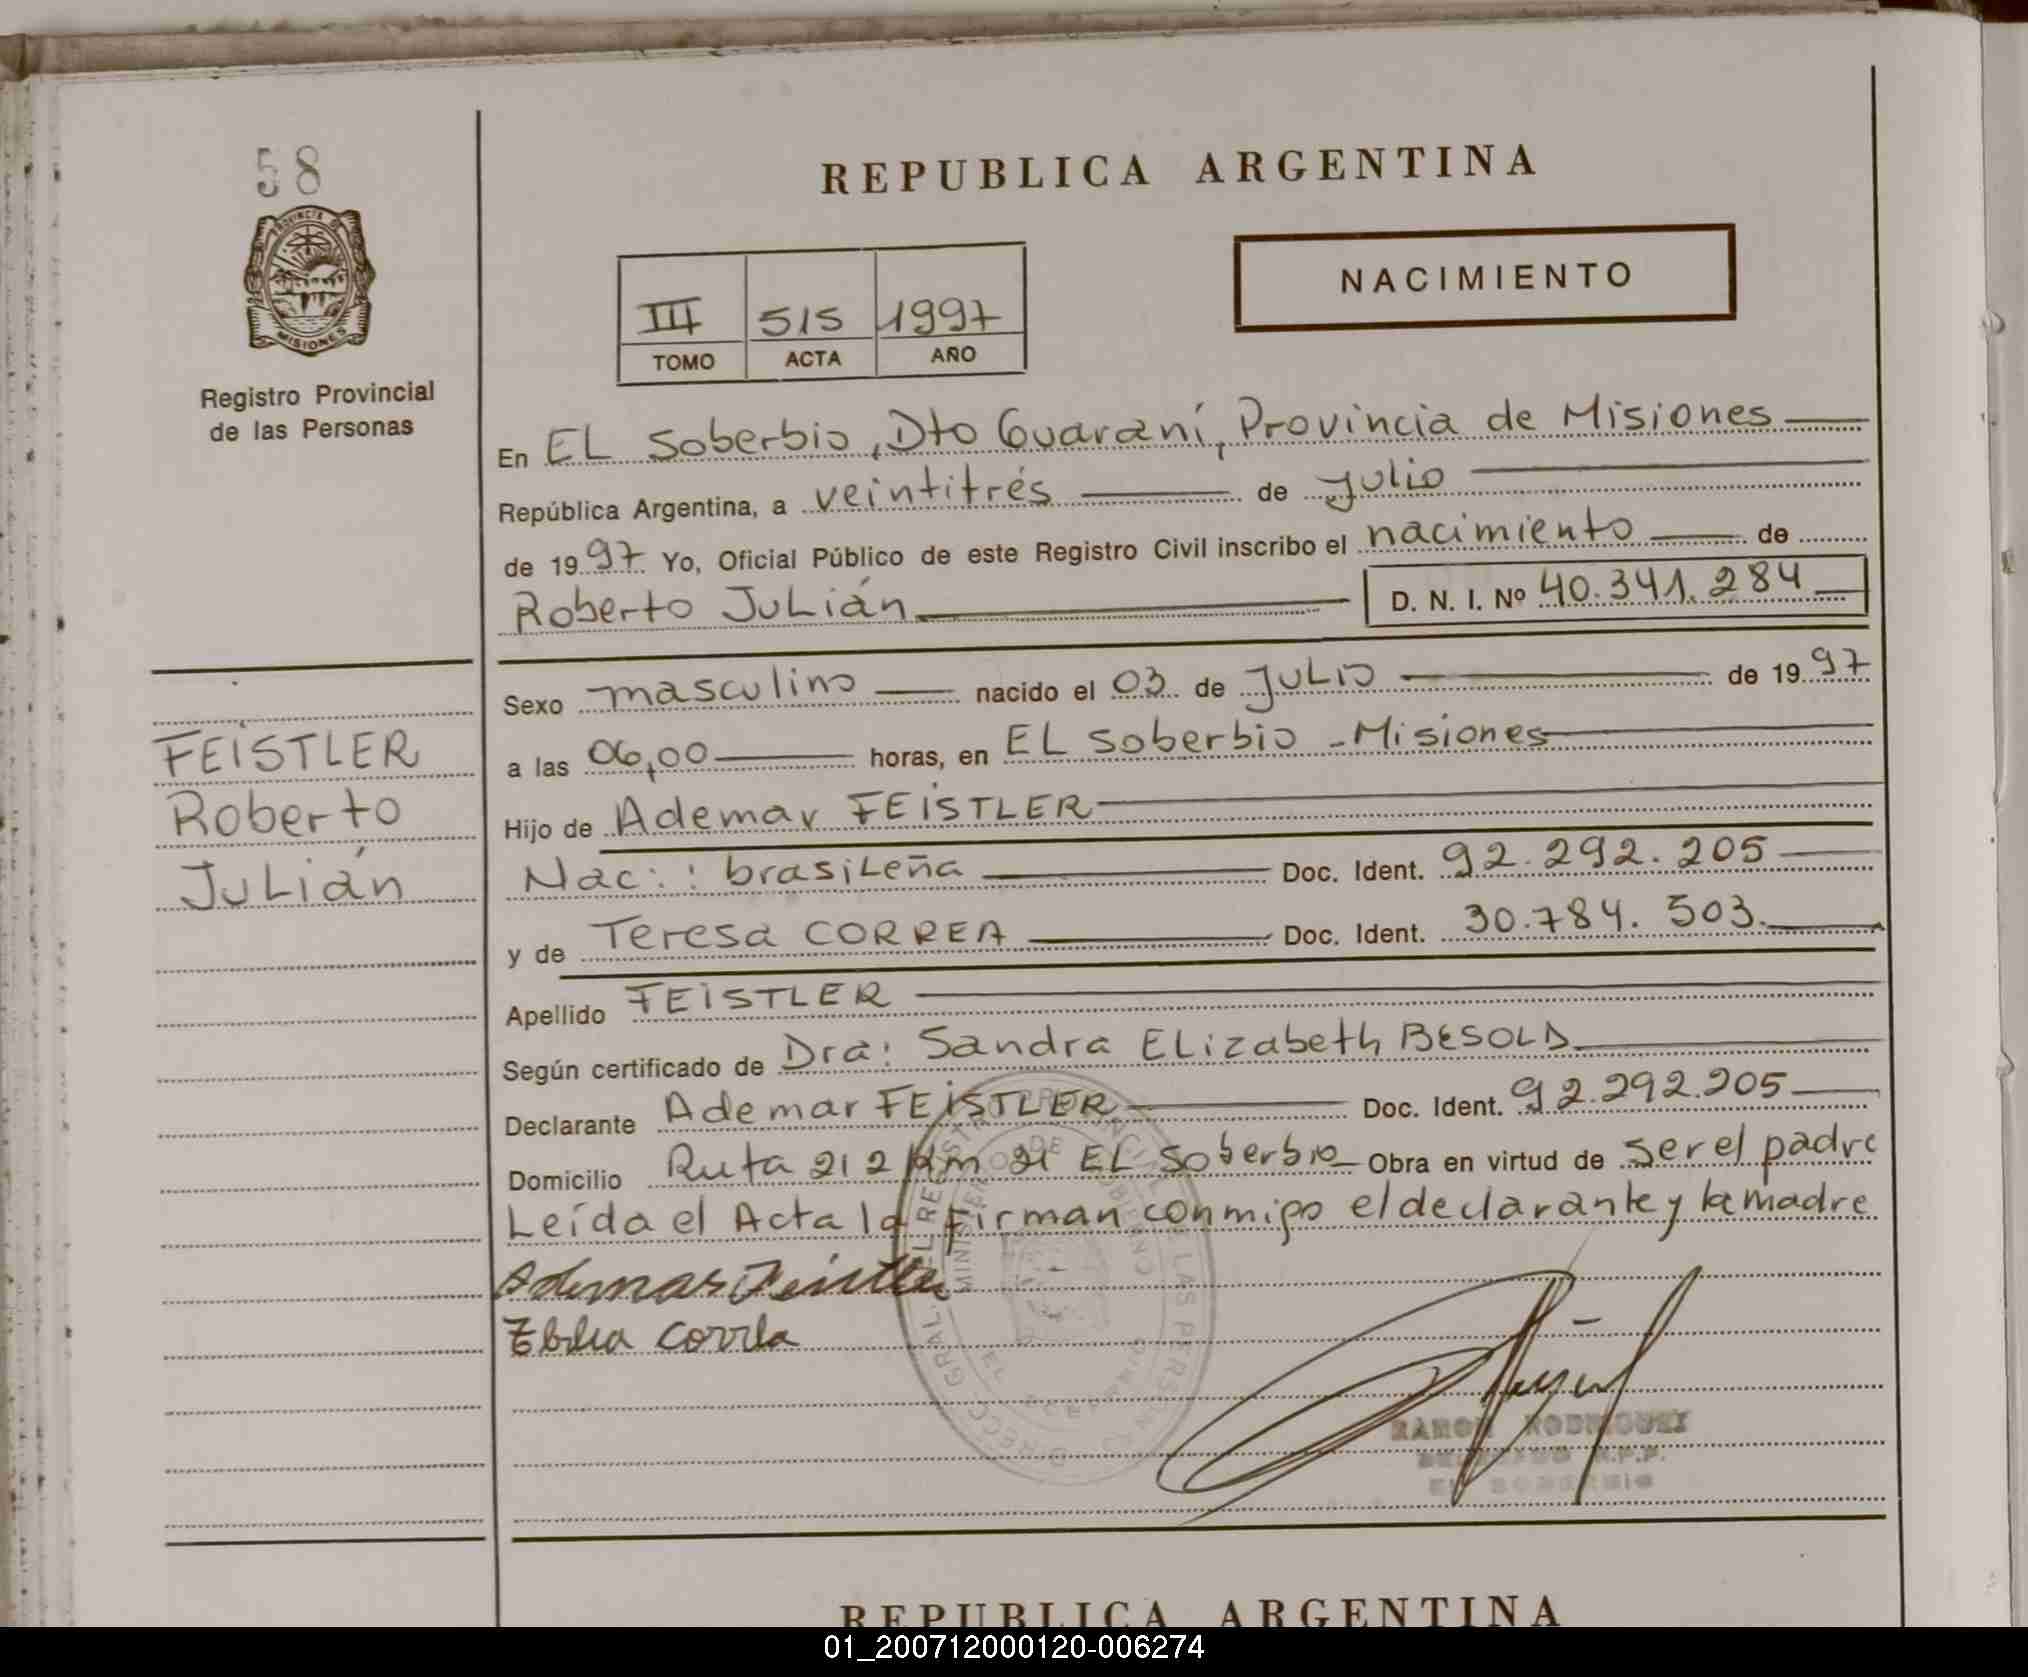 58
PROVINCIA DE
MISIONES
Registro Provincial
de las Personas
FEISTLER
Roberto
Julián
REPUBLICA ARGENTINA
NACIMIENTO
III 515 1997
TOMO ACTA AÑO
En EL Soberbio, Dto Guaraní, Provincia de Misiones
República Argentina, a veintitrés de julio
de 1997 Yo, Oficial Público de este Registro Civil inscribo el nacimiento de
Roberto Julián D. N. I. Nº 40.341.284
Sexo masculino nacido el 03 de Julio de 1997
a las 06,00 horas, en EL Soberbio - Misiones
Hijo de Ademar FEISTLER
Nac.: brasileña Doc. Ident. 92.292.205
y de Teresa CORREA Doc. Ident. 30.784.503.
Apellido FEISTLER
Según certificado de Dra: Sandra Elizabeth BESOLD
Declarante Ademar FEISTLER Doc. Ident. 92.292.205
Domicilio Ruta 212 Km 21 EL Soberbio Obra en virtud de ser el padre
Leída el Acta la firman conmigo el declarante y la madre
Ademar Feistler
Correa
RAMON RODRIGUEZ
R.P.P.
EL SOBERBIO
REPUBLICA ARGENTINA
01_200712000120-006274